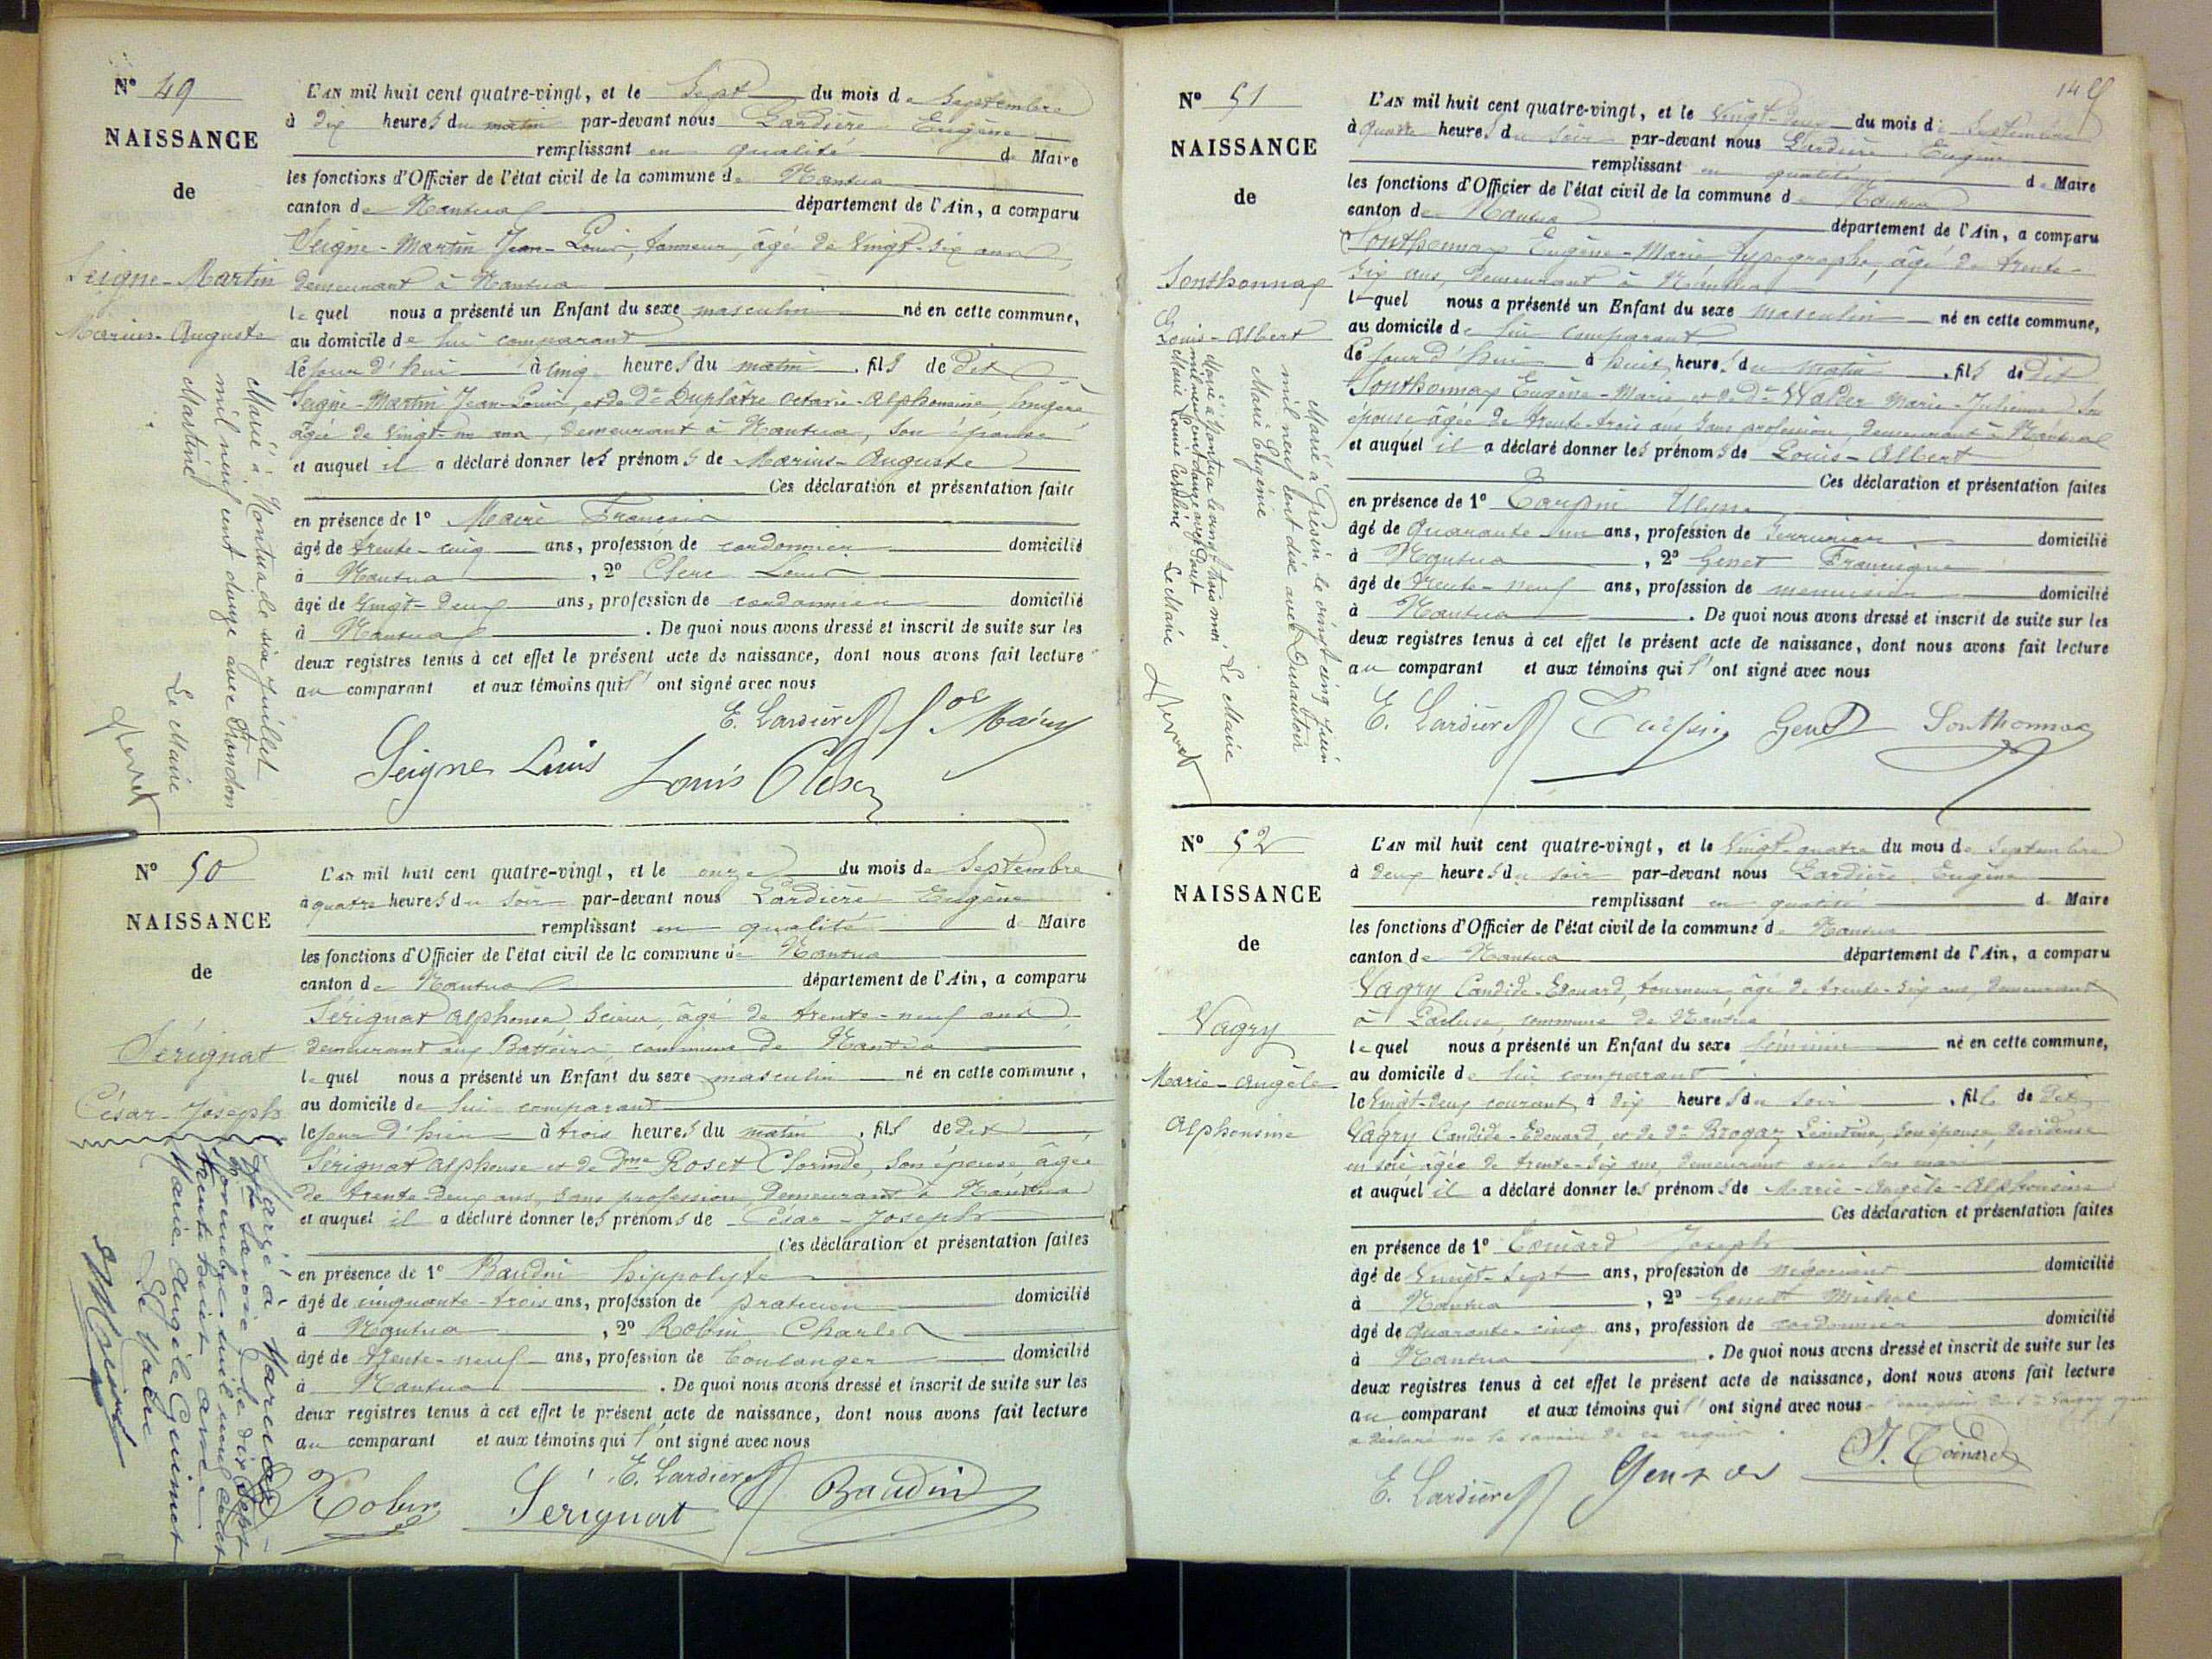 Nº 49
NAISSANCE
de
Seigne-Martin
Marius-Auguste
Marié à Nantua le six juillet
mil neuf cent douze avec Frandon
Martine
Le Maire
L'AN mil huit cent quatre-vingt, et le Sept du mois de Septembre
à dix heures du matin par-devant nous Lardière Eugène
remplissant en qualité de Maire
les fonctions d'Officier de l'état civil de la commune de Nantua
canton de Nantua département de l'Ain, a comparu
Seigne-Martin Jean-Louis, tanneur, âgé de vingt-six ans,
demeurant à Nantua
lequel nous a présenté un Enfant du sexe masculin né en cette commune,
au domicile de lui comparant
le jour d'hui à cinq heures du matin, fils de dit
Seigne-Martin Jean-Louis, et de De Duplâtre Octavie-Alphonsine, lingère
âgée de vingt-un ans, demeurant à Nantua, son épouse
et auquel il a déclaré donner les prénoms de Marius-Auguste
Ces déclaration et présentation faite
en présence de 1º Maire François
âgé de trente-cinq ans, profession de cordonnier domicilié
à Nantua, 2º Clerc Louis
âgé de vingt-deux ans, profession de cordonnier domicilié
à Nantua. De quoi nous avons dressé et inscrit de suite sur les
deux registres tenus à cet effet le présent acte de naissance, dont nous avons fait lecture
au comparant et aux témoins qui l'ont signé avec nous
E. Lardière
Seigne Louis Louis Clerc
Nº 50
NAISSANCE
de
Sérignat
César-Joseph
Marié à
Savoie le dix sept
Novembre mil neuf cent
trente huit avec
Marie Angèle Guimet
Le Maire
L'AN mil huit cent quatre-vingt, et le onze du mois de Septembre
à quatre heures du soir par-devant nous Lardière Eugène
remplissant en qualité de Maire
les fonctions d'Officier de l'état civil de la commune de Nantua
canton de Nantua département de l'Ain, a comparu
Sérignat Alphonse, scieur, âgé de trente-neuf ans
demeurant aux Battoirs, commune de Nantua
lequel nous a présenté un Enfant du sexe masculin né en cette commune,
au domicile de lui comparant
le jour d'hier à trois heures du matin, fils de dit
Sérignat Alphonse et de Dme Roset Clorinde, son épouse âgée
de trente-deux ans, sans profession, demeurant à Nantua
et auquel il a déclaré donner les prénoms de César-Joseph
Ces déclaration et présentation faites
en présence de 1º Baudin hippolyte
âgé de cinquante-trois ans, profession de praticien domicilié
à Nantua, 2º Robin Charles
âgé de trente-neuf ans, profession de boulanger domicilié
à Nantua. De quoi nous avons dressé et inscrit de suite sur les
deux registres tenus à cet effet le présent acte de naissance, dont nous avons fait lecture
au comparant et aux témoins qui l'ont signé avec nous
E. Lardière
Robin Sérignat Baudin
Nº 51
NAISSANCE
de
Sonthonnax
Louis-Albert
Marié à Gresin le vingt cinq juin
mil neuf cent dix avec
Marie Eugénie
Le Maire
Marié à Nantua le vingt trois mai
mil neuf cent douze avec
Marie Louise
Le Maire
L'AN mil huit cent quatre-vingt, et le vingt-deux du mois de Septembre
à quatre heures du soir par-devant nous Lardière Eugène
remplissant en qualité de Maire
les fonctions d'Officier de l'état civil de la commune de Nantua
canton de Nantua département de l'Ain, a comparu
Sonthonnax Eugène-Marie, typographe, âgé de trente-
six ans, demeurant à Nantua
lequel nous a présenté un Enfant du sexe masculin né en cette commune,
au domicile de lui comparant
le jour d'hui à huit heures du matin, fils de dit
Sonthonnax Eugène-Marie et de De Walder Marie-Julienne son
épouse âgée de trente-trois ans sans profession, demeurant à Nantua
et auquel il a déclaré donner les prénoms de Louis-Albert
Ces déclaration et présentation faites
en présence de 1º
âgé de quarante-un ans, profession de serrurier domicilié
à Nantua, 2º Genet Francisque
âgé de trente-neuf ans, profession de menuisier domicilié
à Nantua. De quoi nous avons dressé et inscrit de suite sur les
deux registres tenus à cet effet le présent acte de naissance, dont nous avons fait lecture
au comparant et aux témoins qui l'ont signé avec nous
E. Lardière Genet Sonthonnax
Nº 52
NAISSANCE
de
Vagry
Marie-Angèle
Alphonsine
L'AN mil huit cent quatre-vingt, et le vingt-quatre du mois de Septembre
à deux heures du soir par-devant nous Lardière Eugène
remplissant en qualité de Maire
les fonctions d'Officier de l'état civil de la commune de Nantua
canton de Nantua département de l'Ain, a comparu
Vagry Candide-Edouard, tourneur, âgé de trente-six ans, demeurant
à Lacluse, commune de Nantua
lequel nous a présenté un Enfant du sexe féminin né en cette commune,
au domicile de lui comparant
le vingt-deux courant à dix heures du soir, fille de dit
Vagry Candide-Edouard, et de De Brogaz Léontine, son épouse, dévideuse
en soie âgée de trente-six ans, demeurant avec son mari
et auquel il a déclaré donner les prénoms de Marie-Angèle-Alphonsine
Ces déclaration et présentation faites
en présence de 1º Joseph
âgé de vingt-sept ans, profession de négociant domicilié
à Nantua, 2º Michel
âgé de quarante-cinq ans, profession de cordonnier domicilié
à Nantua. De quoi nous avons dressé et inscrit de suite sur les
deux registres tenus à cet effet le présent acte de naissance, dont nous avons fait lecture
au comparant et aux témoins qui l'ont signé avec nous à l'exception dudit Vagry qui
a déclaré ne le savoir de ce requis.
E. Lardière